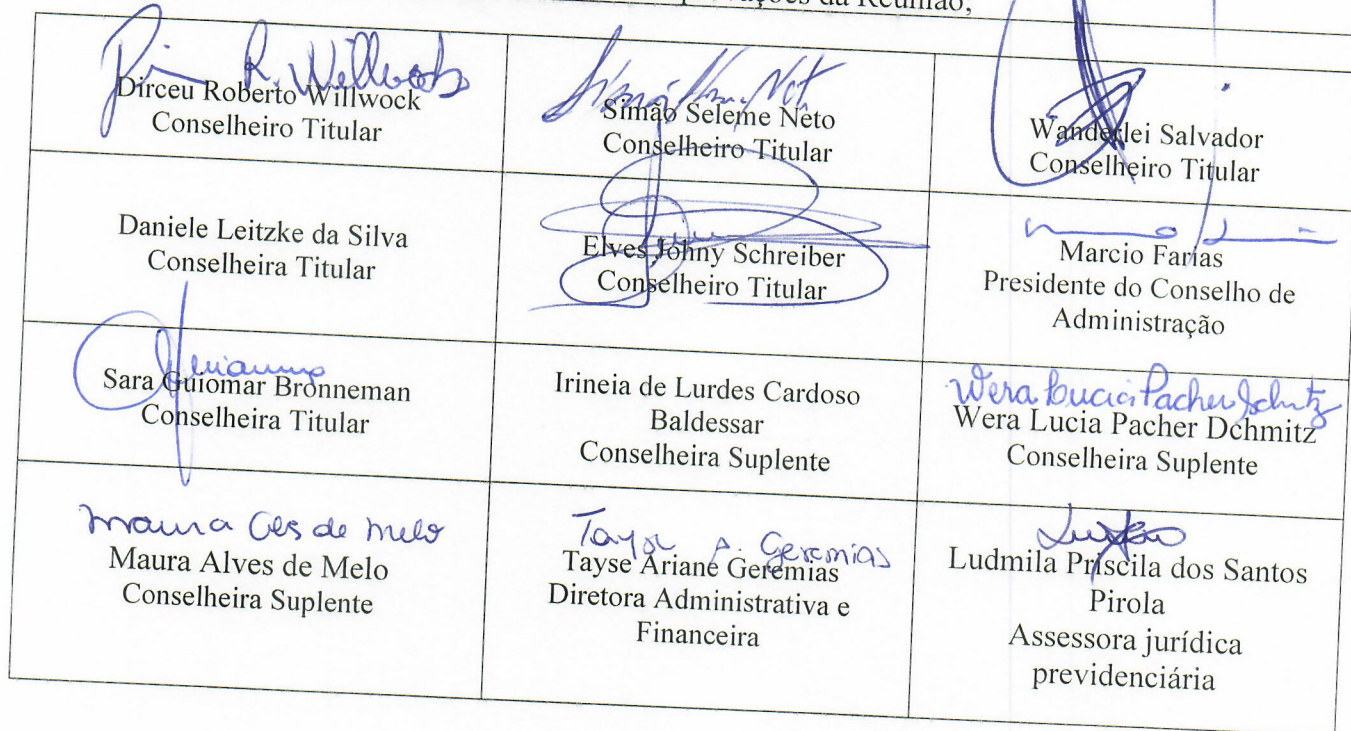 da Reunião,
R. Willwock
Dirceu Roberto Willwock
Conselheiro Titular
Simão Seleme Neto
Conselheiro Titular
Wanderlei Salvador
Conselheiro Titular
Daniele Leitzke da Silva
Conselheira Titular
Elves Johny Schreiber
Conselheiro Titular
Marcio Farias
Presidente do Conselho de
Administração
Sara Guiomar Bronneman
Conselheira Titular
Irineia de Lurdes Cardoso
Baldessar
Conselheira Suplente
Wera Lucia Pacher Schmitz
Wera Lucia Pacher Dchmitz
Conselheira Suplente
Maura de Melo
Maura Alves de Melo
Conselheira Suplente
Tayse A. Geremias
Tayse Ariane Geremias
Diretora Administrativa e
Financeira
Ludmila Priscila dos Santos
Pirola
Assessora jurídica
previdenciária